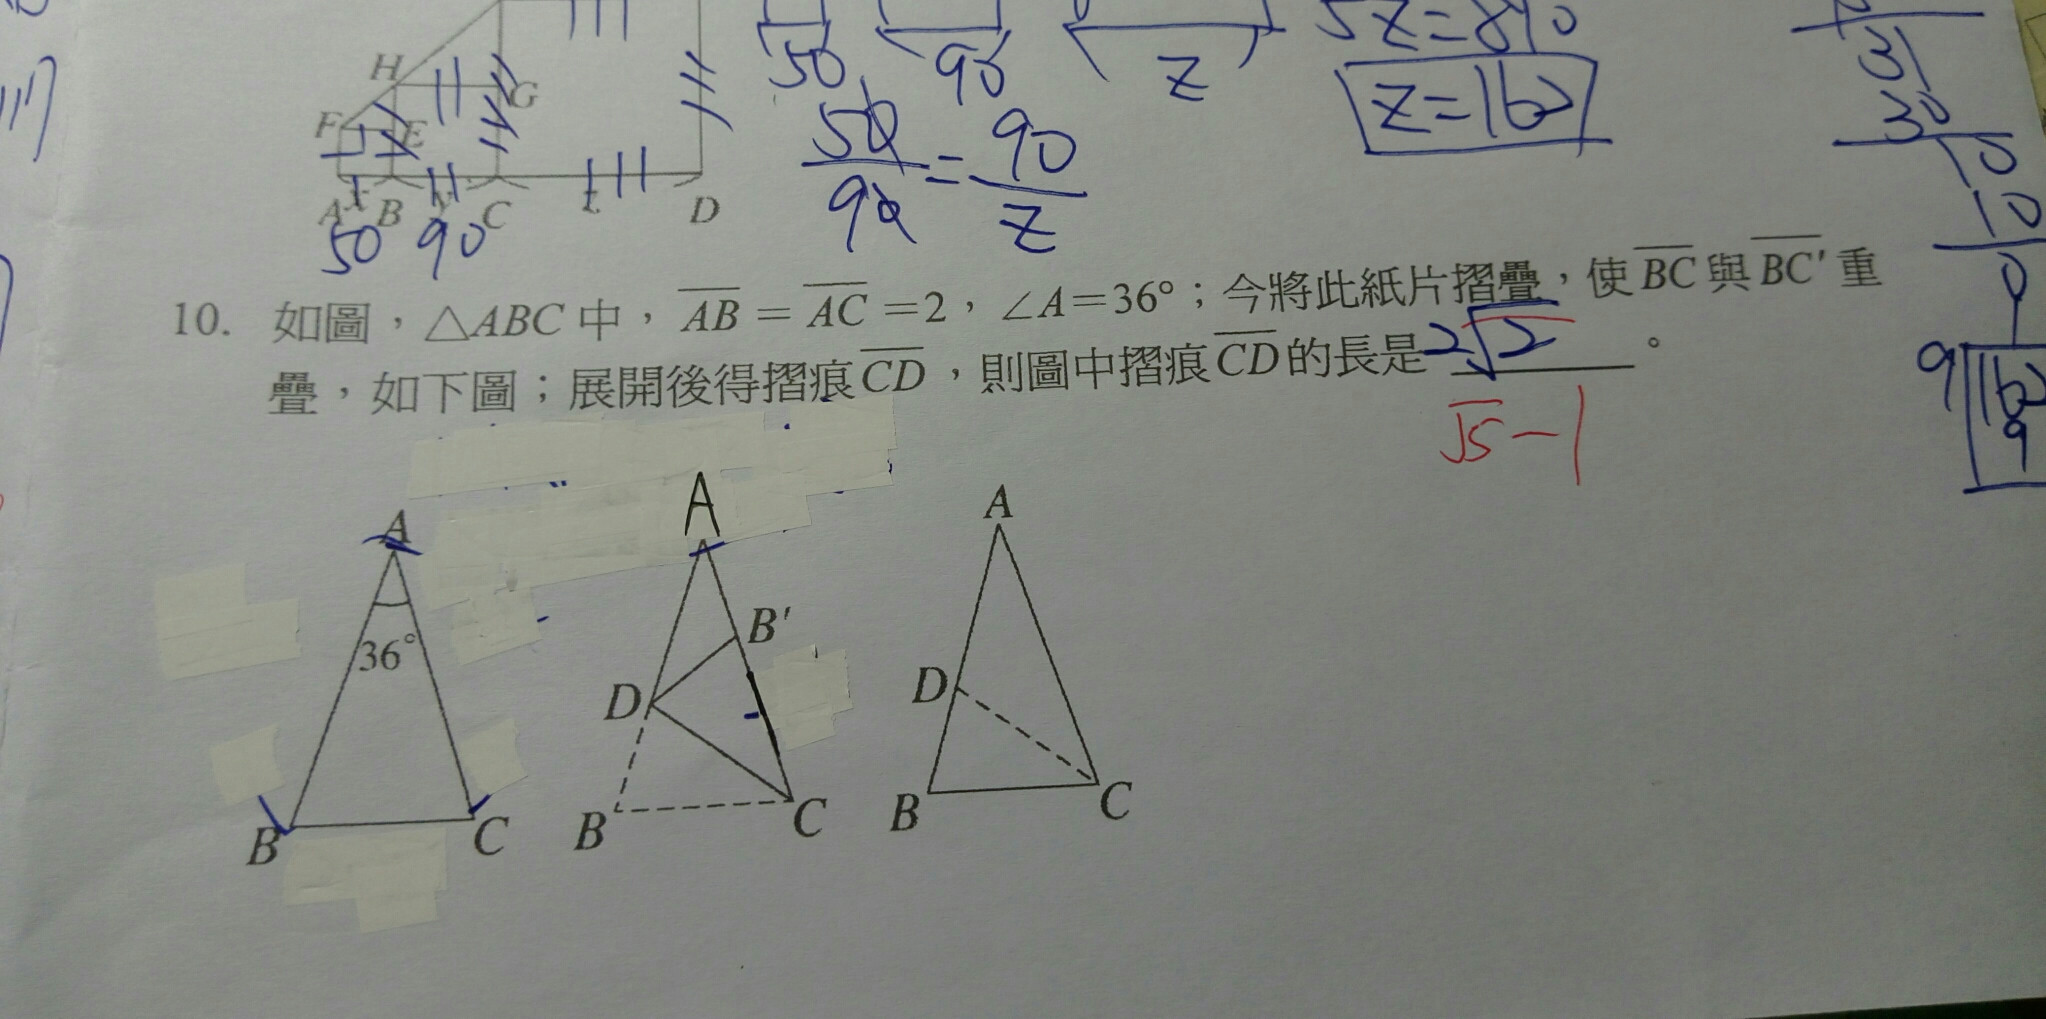 H
G
F
E
A B C D
50 90
50 90 z
50/90 = 90/z
5z=810
z=162
10. 如圖，△ABC 中，AB = AC =2，∠A=36°；今將此紙片摺疊，使BC與BC'重
疊，如下圖；展開後得摺痕CD，則圖中摺痕CD的長是2√2。
√5-1
A A A
36° B' D D
B C B C B C